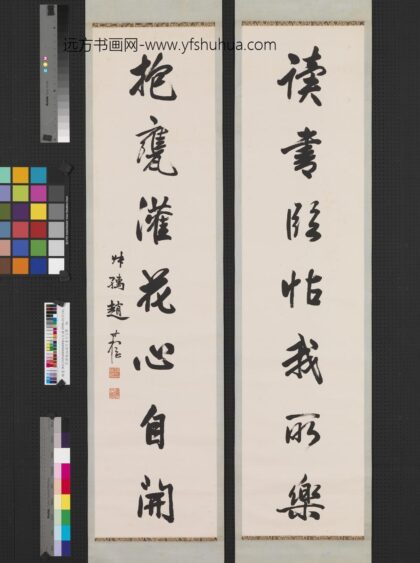 远方书画网-www.yfshuhua.com
读书临帖我所樂
抱甕灌花心自開
趙